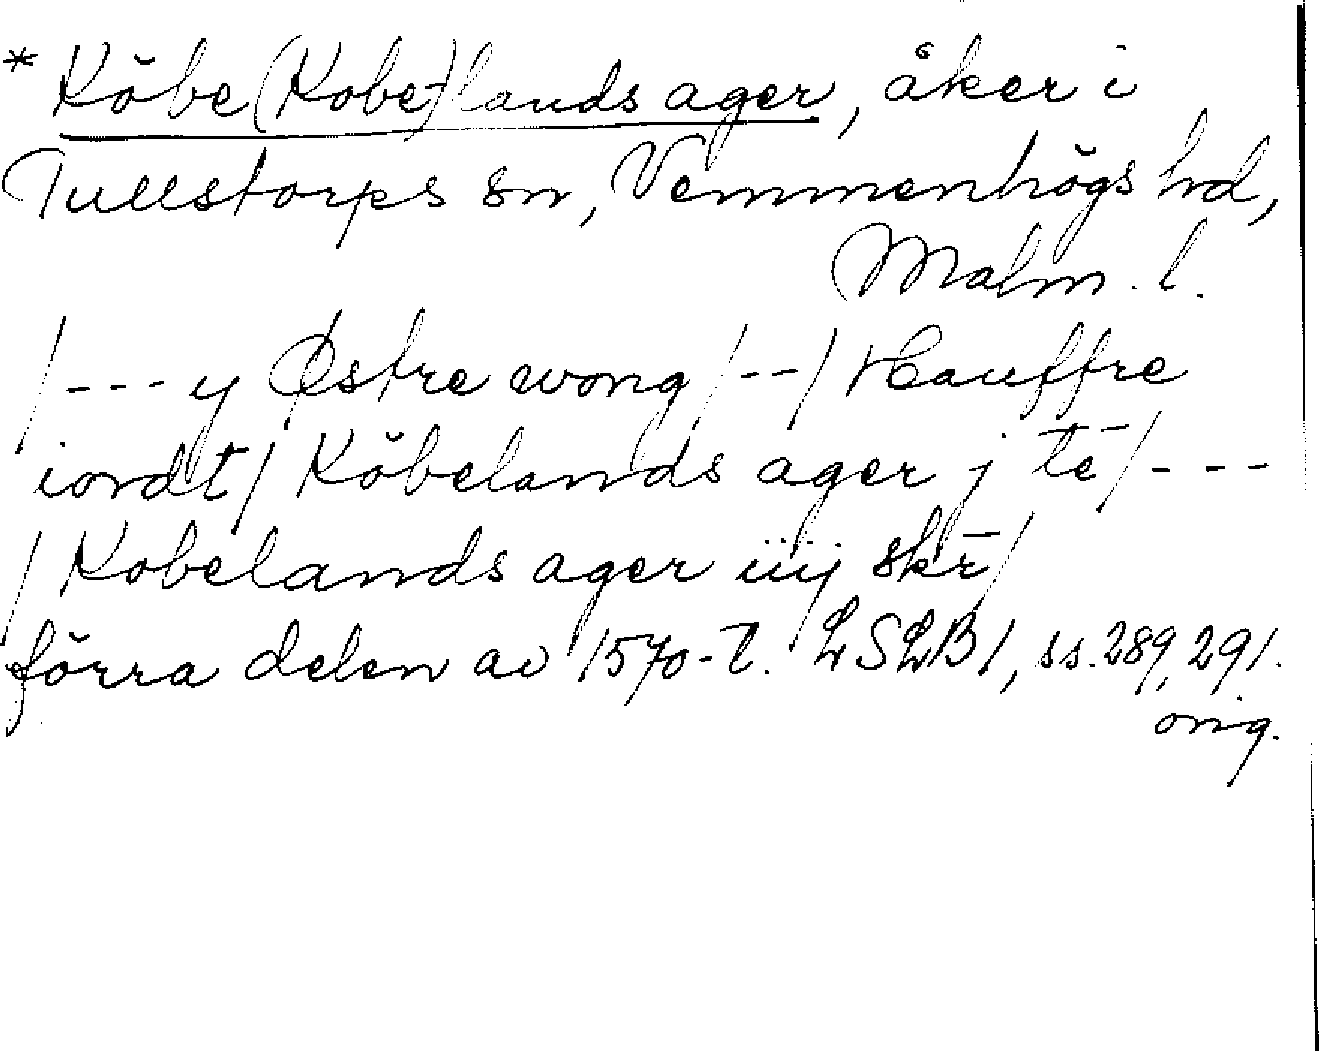 * Köbe(Kobe-)lands ager, åker i
Tullstorps sn, Vemmenhögs hd,
Malm. l.
/--- y Østre wong /--/ Hauffre
iordt/ Köbelands ager j te̅ /---
/ Kobelands ager iiij skr̅ /
förra delen av 1570-t. LSLB1, ss. 289, 291.
orig.